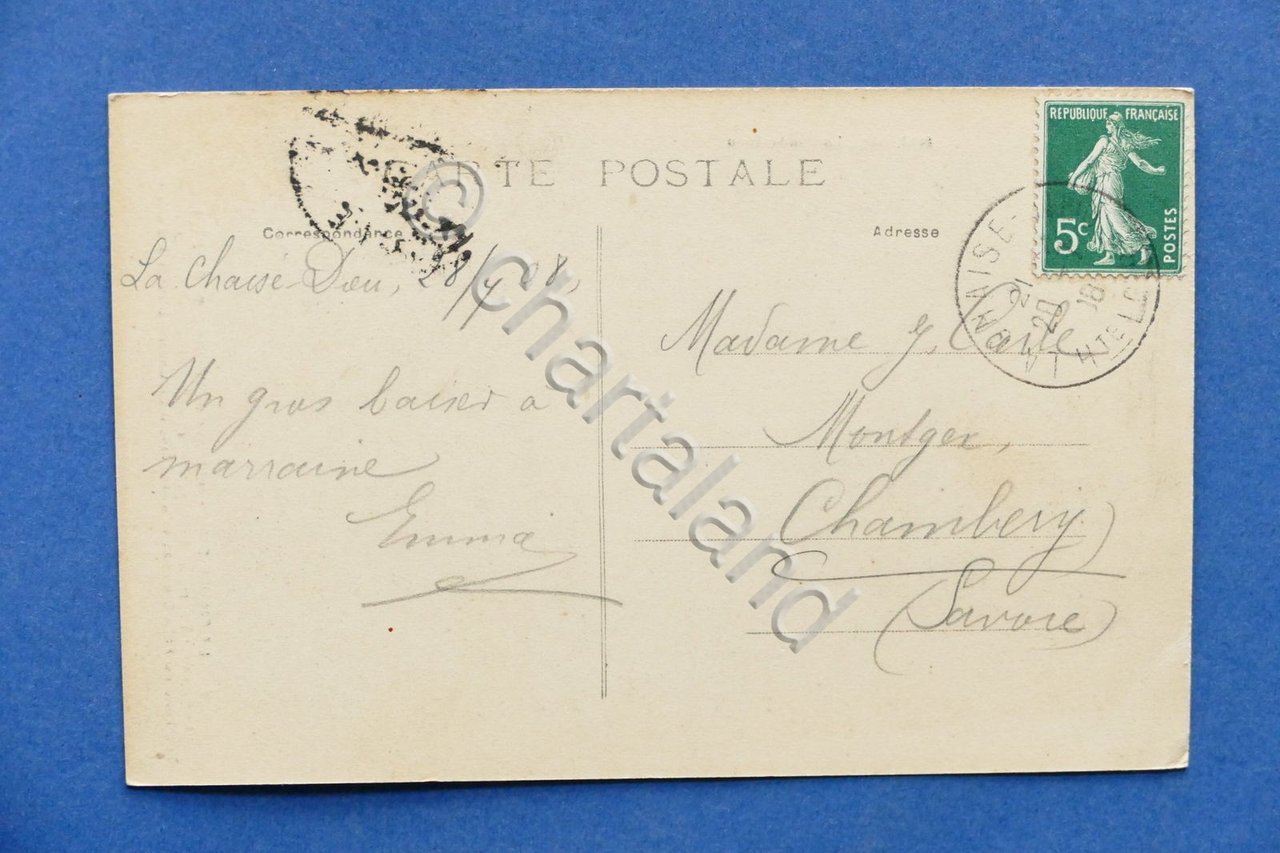 CARTE POSTALE
Correspondance
Adresse
RÉPUBLIQUE FRANÇAISE
5c
POSTES
LA CHAISE-
Hte L
La Chaise Dieu, 28/4 08,
Un gros baiser à
marraine
Emma
Madame J,
Montger,
Chambery
(Savoie)
© chartaland